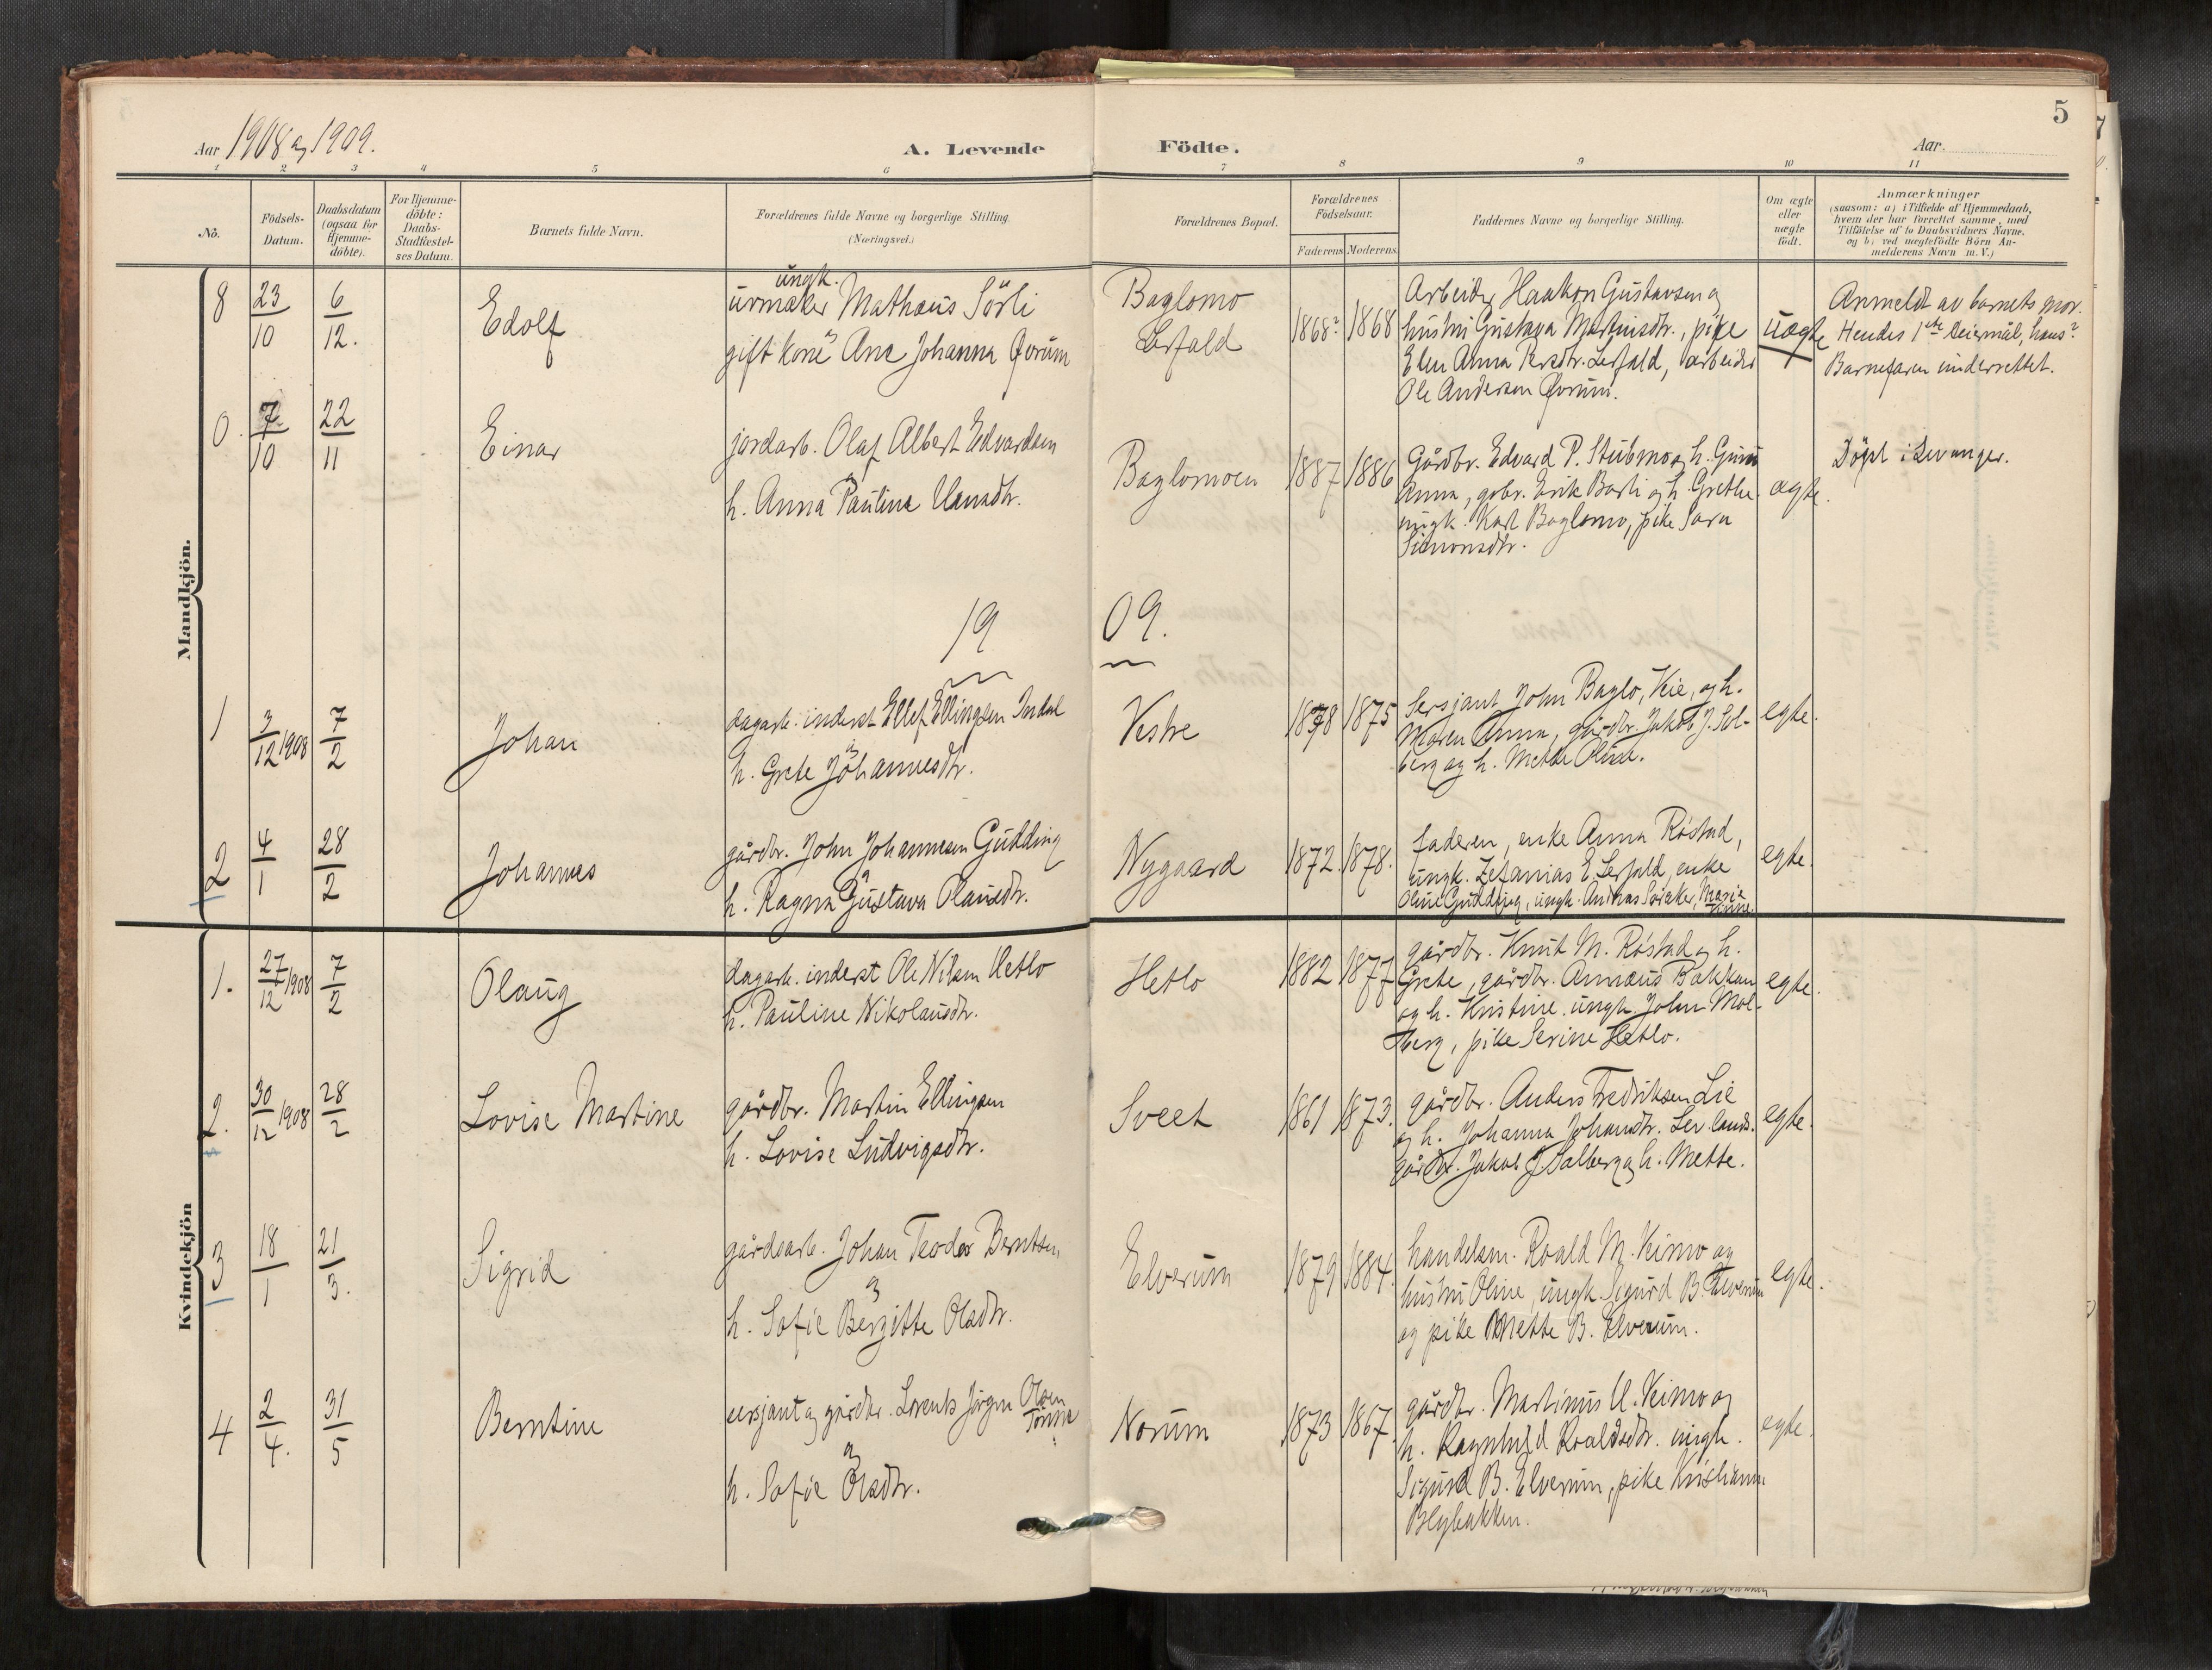 5
Aar 1908 og 1909.
A. Levende Födte.
Aar.
1 2 3 4 5 6 7 8 9 10 11
No.
Födsels-Datum.
Daabsdatum (ogsaa for Hjemme-döbte).
For Hjemme-döbte: Daabs-Stadfæstel-ses Datum.
Barnets fulde Navn.
Forældrenes fulde Navne og borgerlige Stilling
(Næringsvei.)
Forældrenes Bopæl.
Forældrenes Födselsaar.
Faderens Moderens
Faddernes Navne og borgerlige Stilling.
Om ægte eller uægte födt.
Anmærkninger
(saasom: a) i Tilfælde af Hjemmedaab,
hvem der har forrettet samme, med
Tilföielse af to Daabsvidners Navne.
og b) ved uægtefödte Börn An-
melderens Navn m. V.)
Mandkjön.
8 23/10 6/12. Edolf
ungk.
urmaker Mathæus Sörli
og
gift kone Ane Johanna
Baglomo
Lerfald
1868? 1868
Arbeider Haakon Gustavsen og
hustru Gustava Martinsdtr., pike
Elen Anna Persdtr. Lerfald, arbeider
Ole Andersen
uægte
Anmeldt av barnets mor.
Hendes 1ste leiermål, hans?
Barnefaren underrettet.
0. 7/10 22/11 Einar
jordarb. Olaf Albert Edvardsen
og
h. Anna Paulina Hansdtr.
Baglomoen
1887 1886
Gårdbr. Edvard P. Stubmo og h.
Anna, gbr. Erik og h. Grethe
ungk. Karl Baglomo, pike Sara
Simonsdtr.
ægte.
Döpt i Levanger.
1909.
1 3/12 1908 7/2 Johan
dagarb. inderst Ellef Ellingsen Indal
og
h. Grete Johannesdtr.
Vestre
1878 1875
Sersjant John Baglo, Veie, og h.
Maren Anna, gårdbr. Jakob J. Sol-
berg og h. Mette Oline.
egte.
2 4/1 28/2 Johannes
gårdbr. John Johannesen Gudding
og
h. Ragna Gustava Olausdtr.
Nygaard
1872. 1878.
faderen, enke Anna Röstad,
ungk. Zefanias E. Lerfald, enke
Oline Gudding, ungk. Andreas Maria
egte.
Kvindekjön
1. 27/12 1908 7/2 Olaug
dagarb. inderst Ole Nilsen Hetlo
h. Pauline Nikolausdtr.
Hetlo
1882 1877
gårdbr. Knut M. Röstad og h.
Grete, gårdbr. Annæus Bakkan
og h. Kristine. ungk. John Mol-
berg, pike Serine Hetlo.
egte.
2. 30/12 1908 28/2 Lovise Martine
gårdbr. Martin Ellingsen
h. Lovise Ludvigsdtr.
Sveet
1861 1873.
gårdbr. Anders Fredriksen Lie
og h. Johanna Johansdtr.
gårdbr. Jakob J Salberg og h. Mette.
egte.
3 18/1 21/3. Sigrid
gårdsarb. Johan Teodor Berntsen
og
h. Sofie Bergitte Olsdtr.
Elverum
1879 1884.
handelsm. Roald M. Veimo og
hustru Oline, ungk. Sigurd B. Elverum
og pike Mette B. Elverum.
egte.
4 2/4. 31/5 Berntine
sersjant og gårdbr. Lorents Jörgen Olsen
Tönne
og
h. Sofie Olsdtr.
Norum
1873 1867.
gårdbr. Martinus U. Veimo og
h. Ragnhild Roaldsdtr. ungk.
Sigurd B. Elverum, pike
Blybakken.
egte.